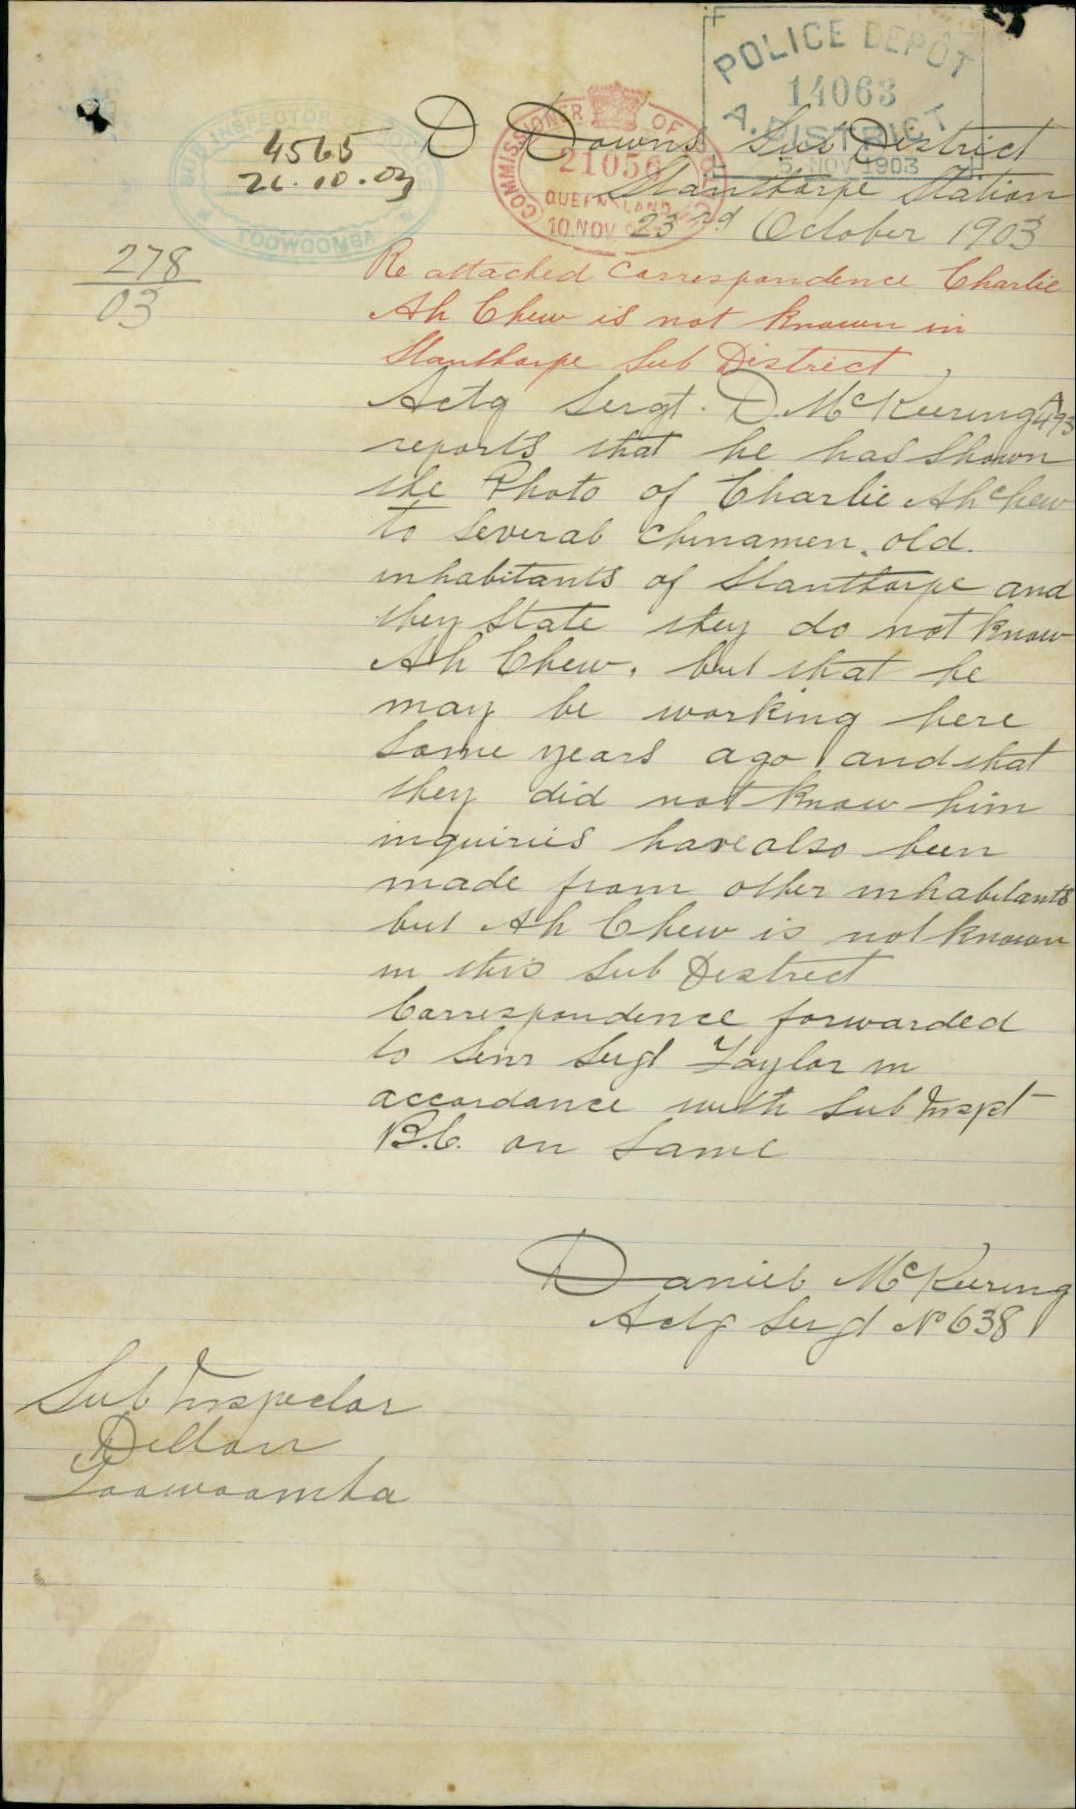 POLICE DEPOT
14063
A. DISTRICT
5 NOV 1903
SUB INSPECTOR OF POLICE
TOOWOOMBA
4565
COMMISSIONER OF POLICE
21056
QUEENSLAND
10 NOV
D Downs Sub District
Stanthorpe Station
23rd October 1903
278
03
Re attached Correspondence Charlie
Ah Chew is not known in
Stanthorpe Sub District
Actg Sergt. D. McKeering
reports that he has shown
the Photo of Charlie Ah Chew
to several Chinamen, old
inhabitants of Stanthorpe and
they State they do not know
Ah Chew, but that he
may be working here
some years ago and that
they did not know him
inquiries have also been
made from other inhabitants
but Ah Chew is not known
in this Sub District
Correspondence forwarded
to Senr Sergt Taylor in
accordance with Sub Inspt
B.C. on same
Daniel McKeering
Actg Sergt No 638
Sub Inspector
Dillon
Toowoomba